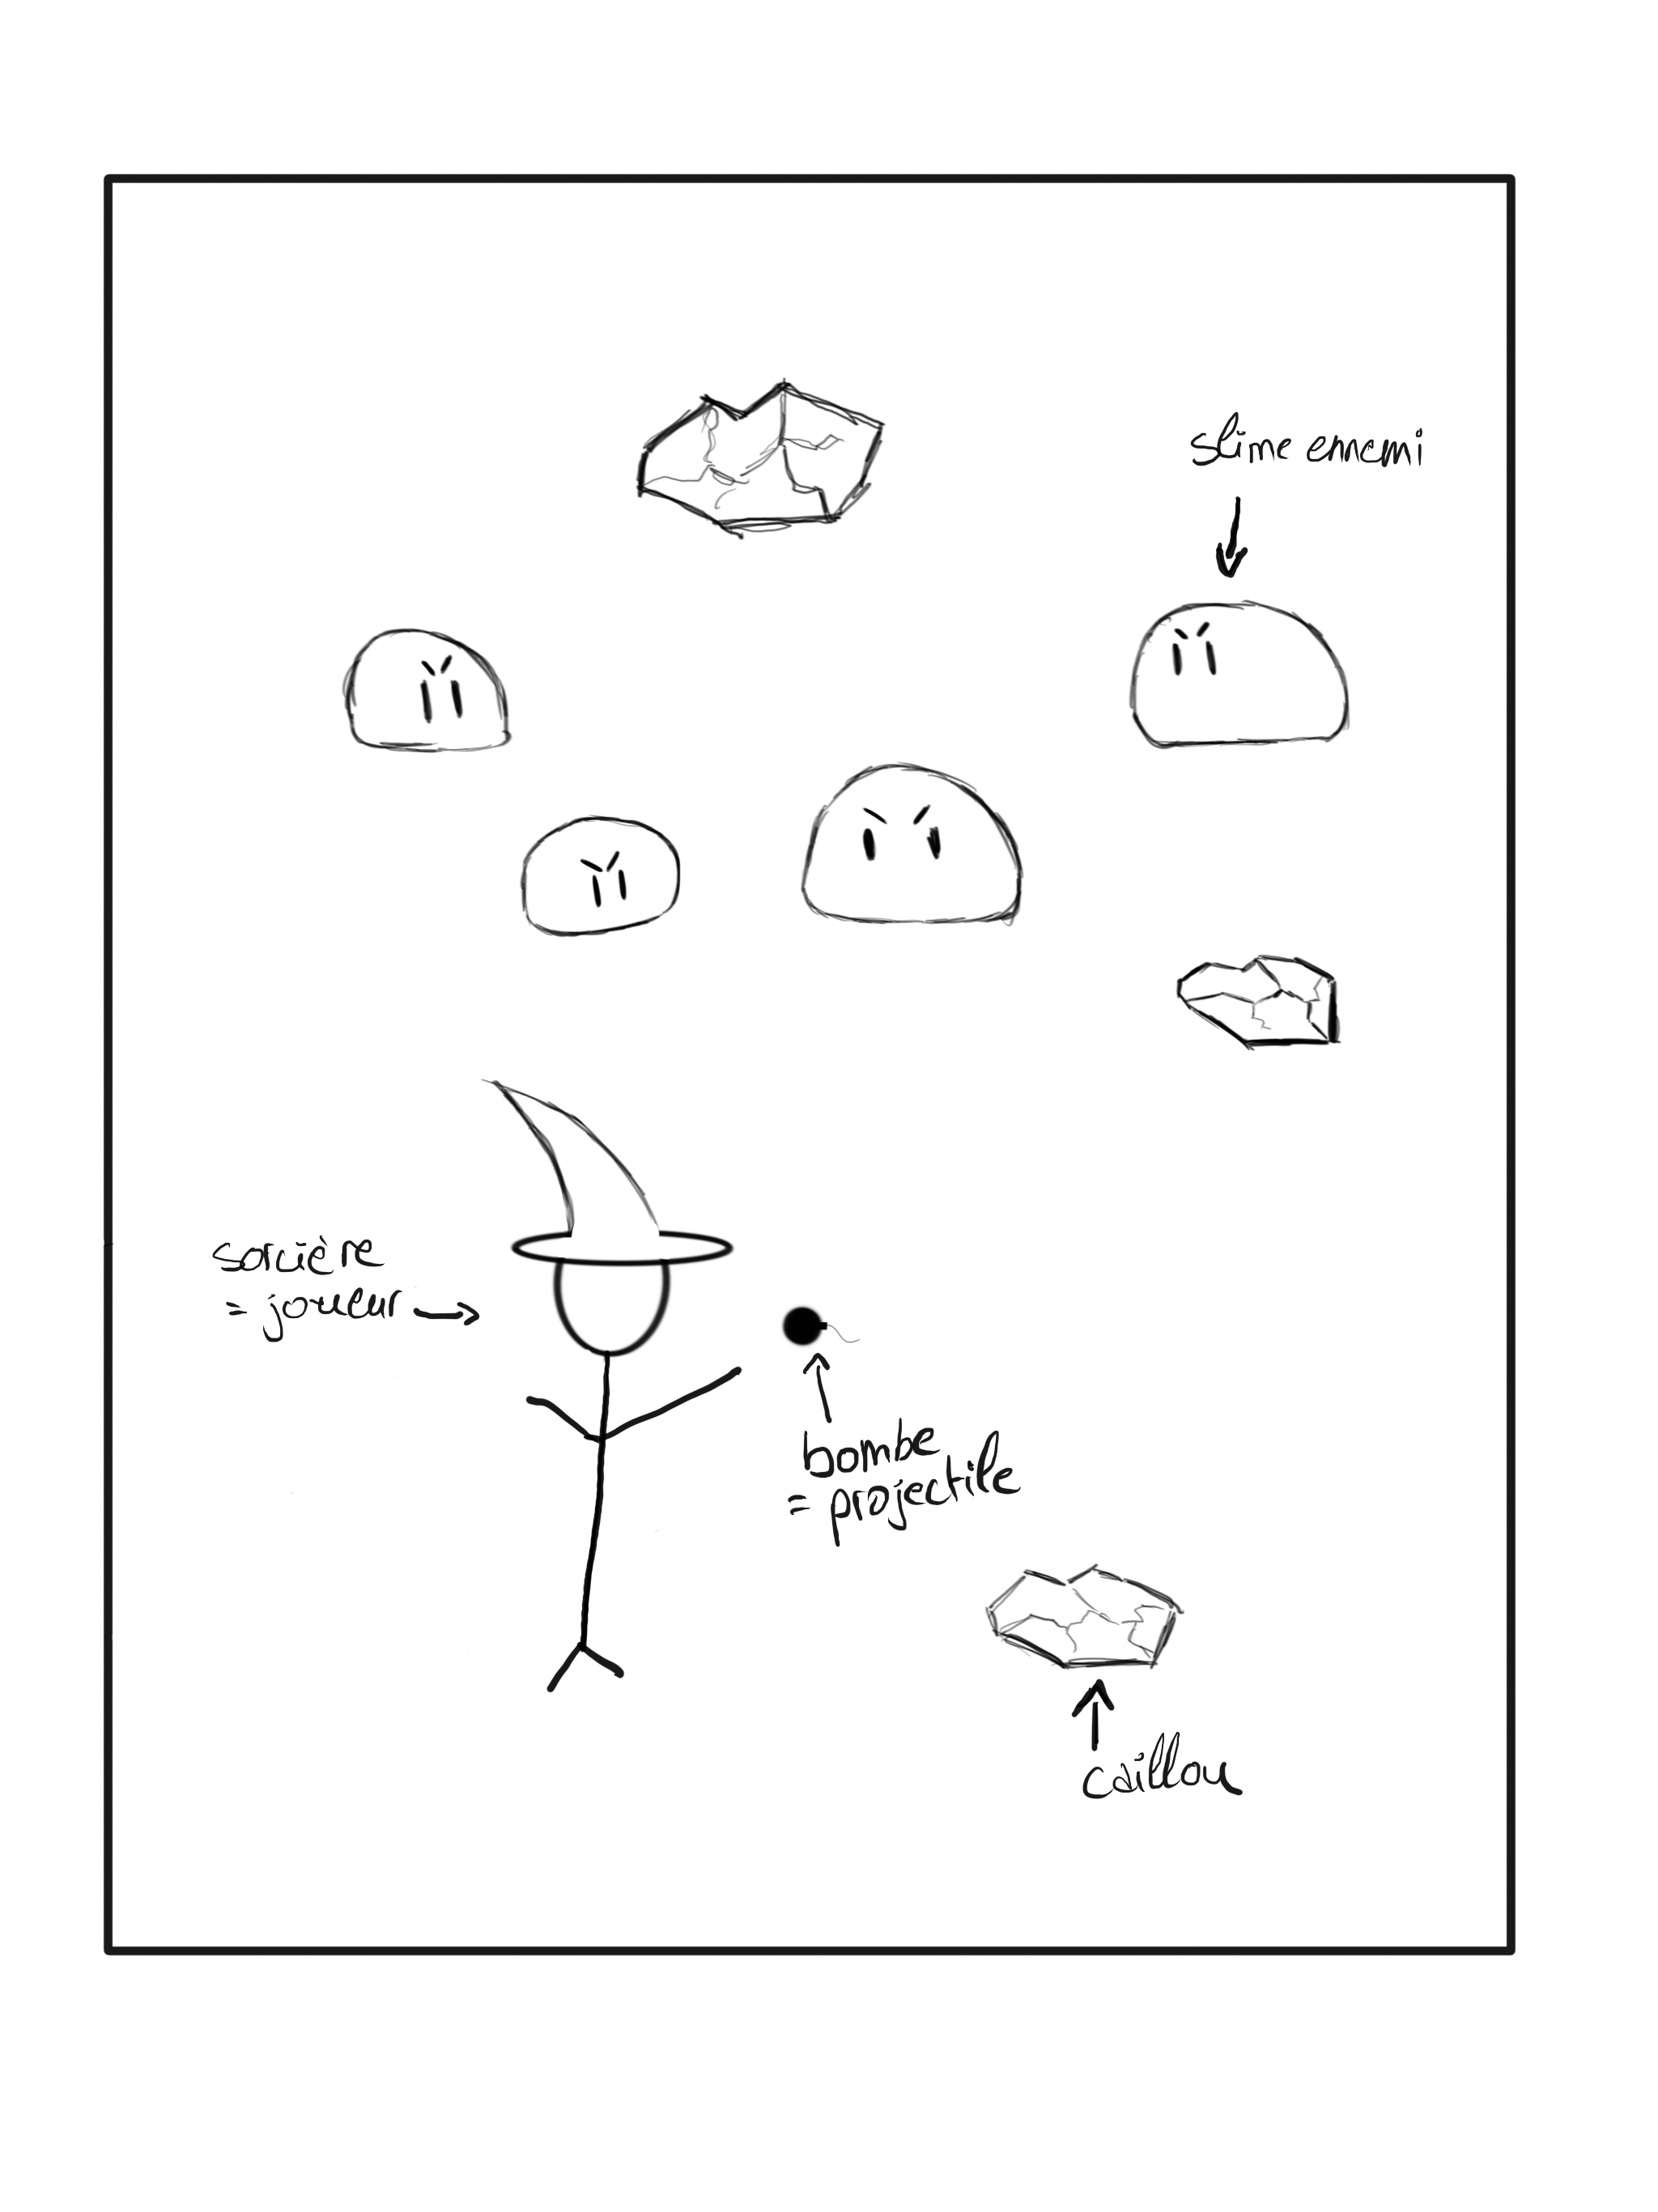 slime ennemi
sorcière
= joueur
bombe
= projectile
caillou